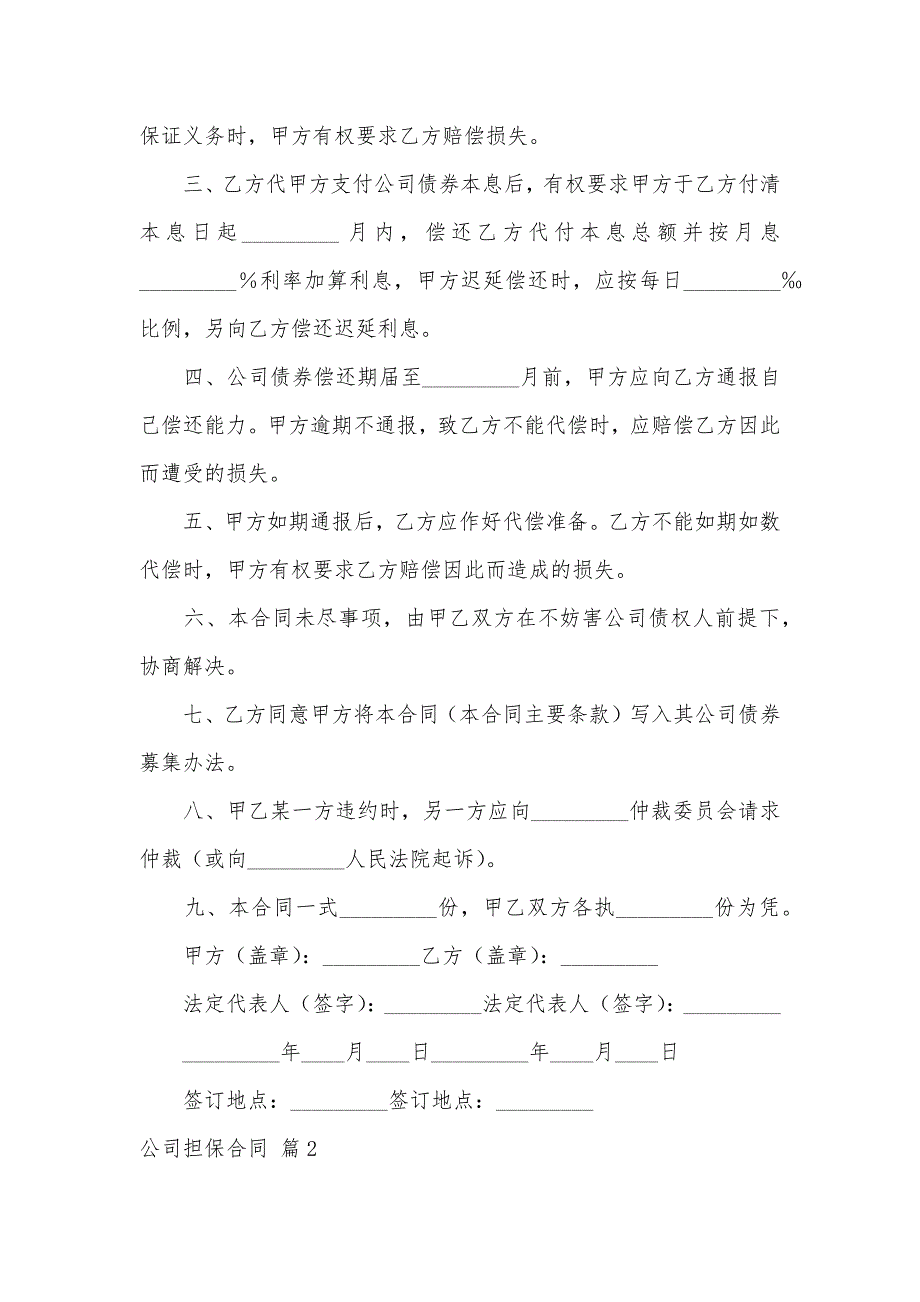 保证义务时，甲方有权要求乙方赔偿损失。
三、乙方代甲方支付公司债券本息后，有权要求甲方于乙方付清
本息日起_________ 月内，偿还乙方代付本息总额并按月息
_________%利率加算利息，甲方迟延偿还时，应按每日_________‰
比例，另向乙方偿还迟延利息。
四、公司债券偿还期届至_________月前，甲方应向乙方通报自
己偿还能力。甲方逾期不通报，致乙方不能代偿时，应赔偿乙方因此
而遭受的损失。
五、甲方如期通报后，乙方应作好代偿准备。乙方不能如期如数
代偿时，甲方有权要求乙方赔偿因此而造成的损失。
六、本合同未尽事项，由甲乙双方在不妨害公司债权人前提下，
协商解决。
七、乙方同意甲方将本合同（本合同主要条款）写入其公司债券
募集办法。
八、甲乙某一方违约时，另一方应向_________仲裁委员会请求
仲裁（或向_________人民法院起诉）。
九、本合同一式_________份，甲乙双方各执_________份为凭。
甲方（盖章）：_________乙方（盖章）：_________
法定代表人（签字）：_________法定代表人（签字）：_________
_________年____月____日_________年____月____日
签订地点：_________签订地点：_________
公司担保合同 篇2